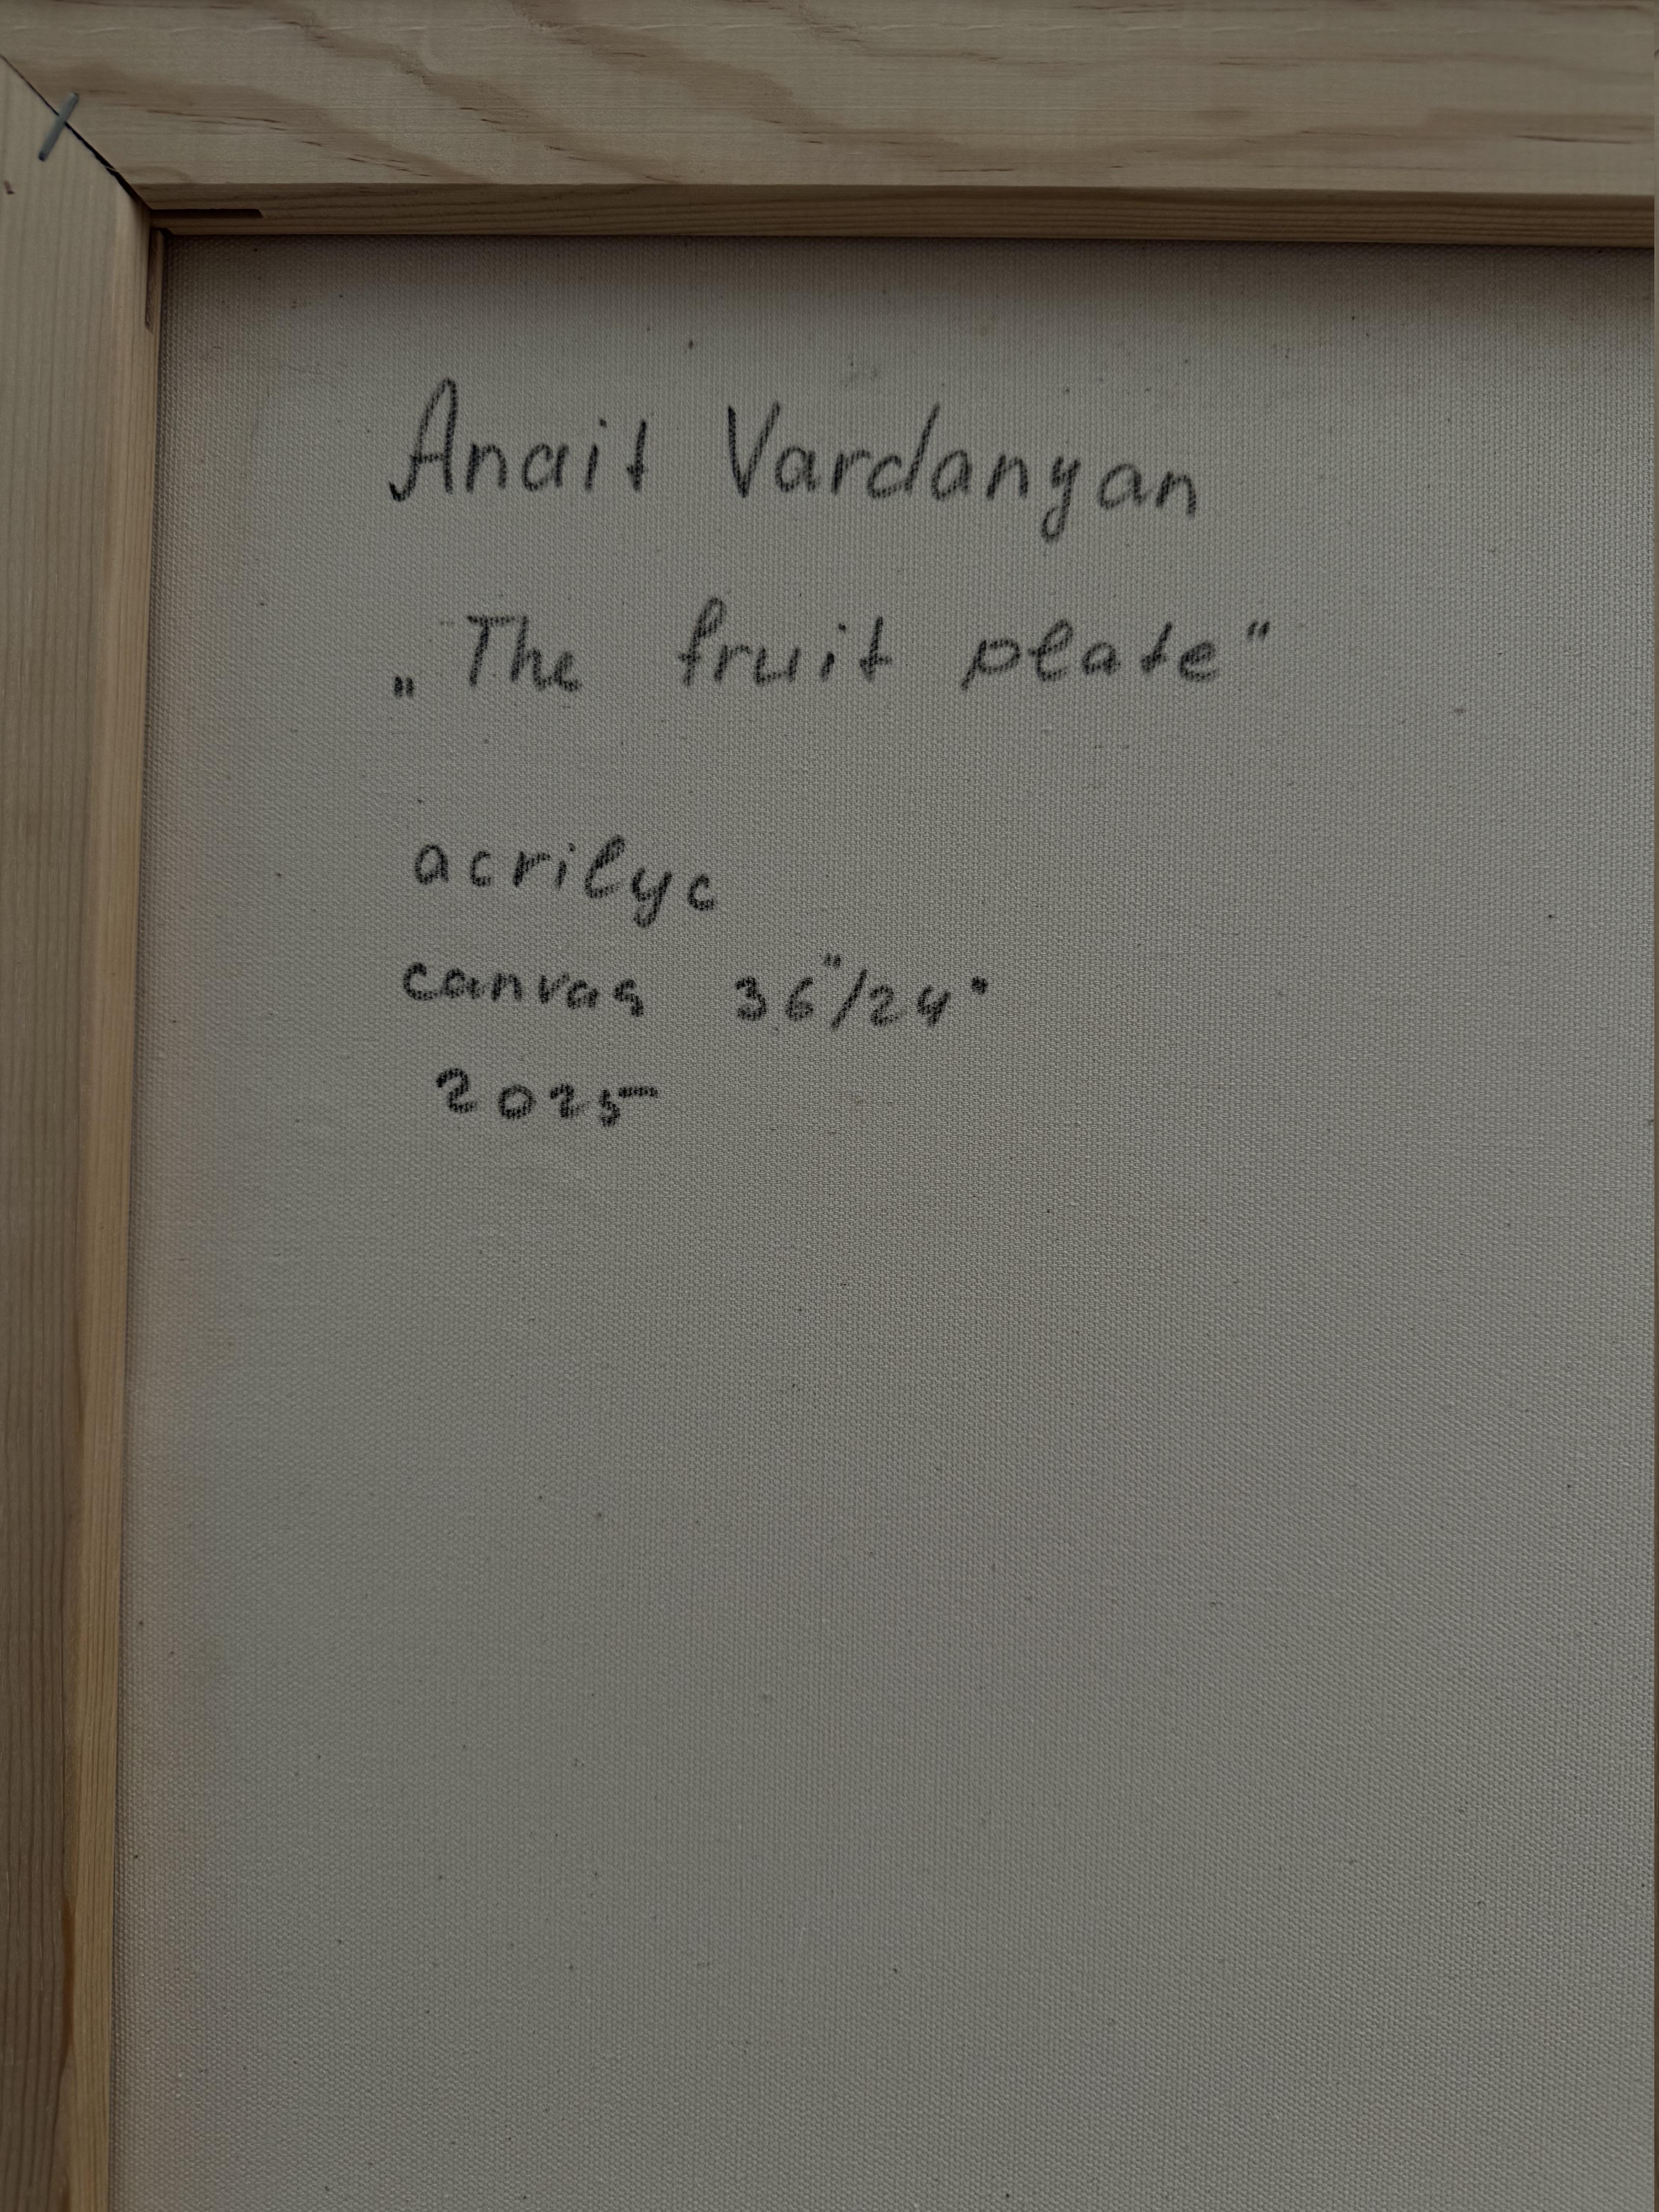 Anait Vardanyan
„The fruit plate“
acrilyc
canvas 36"/24"
2025